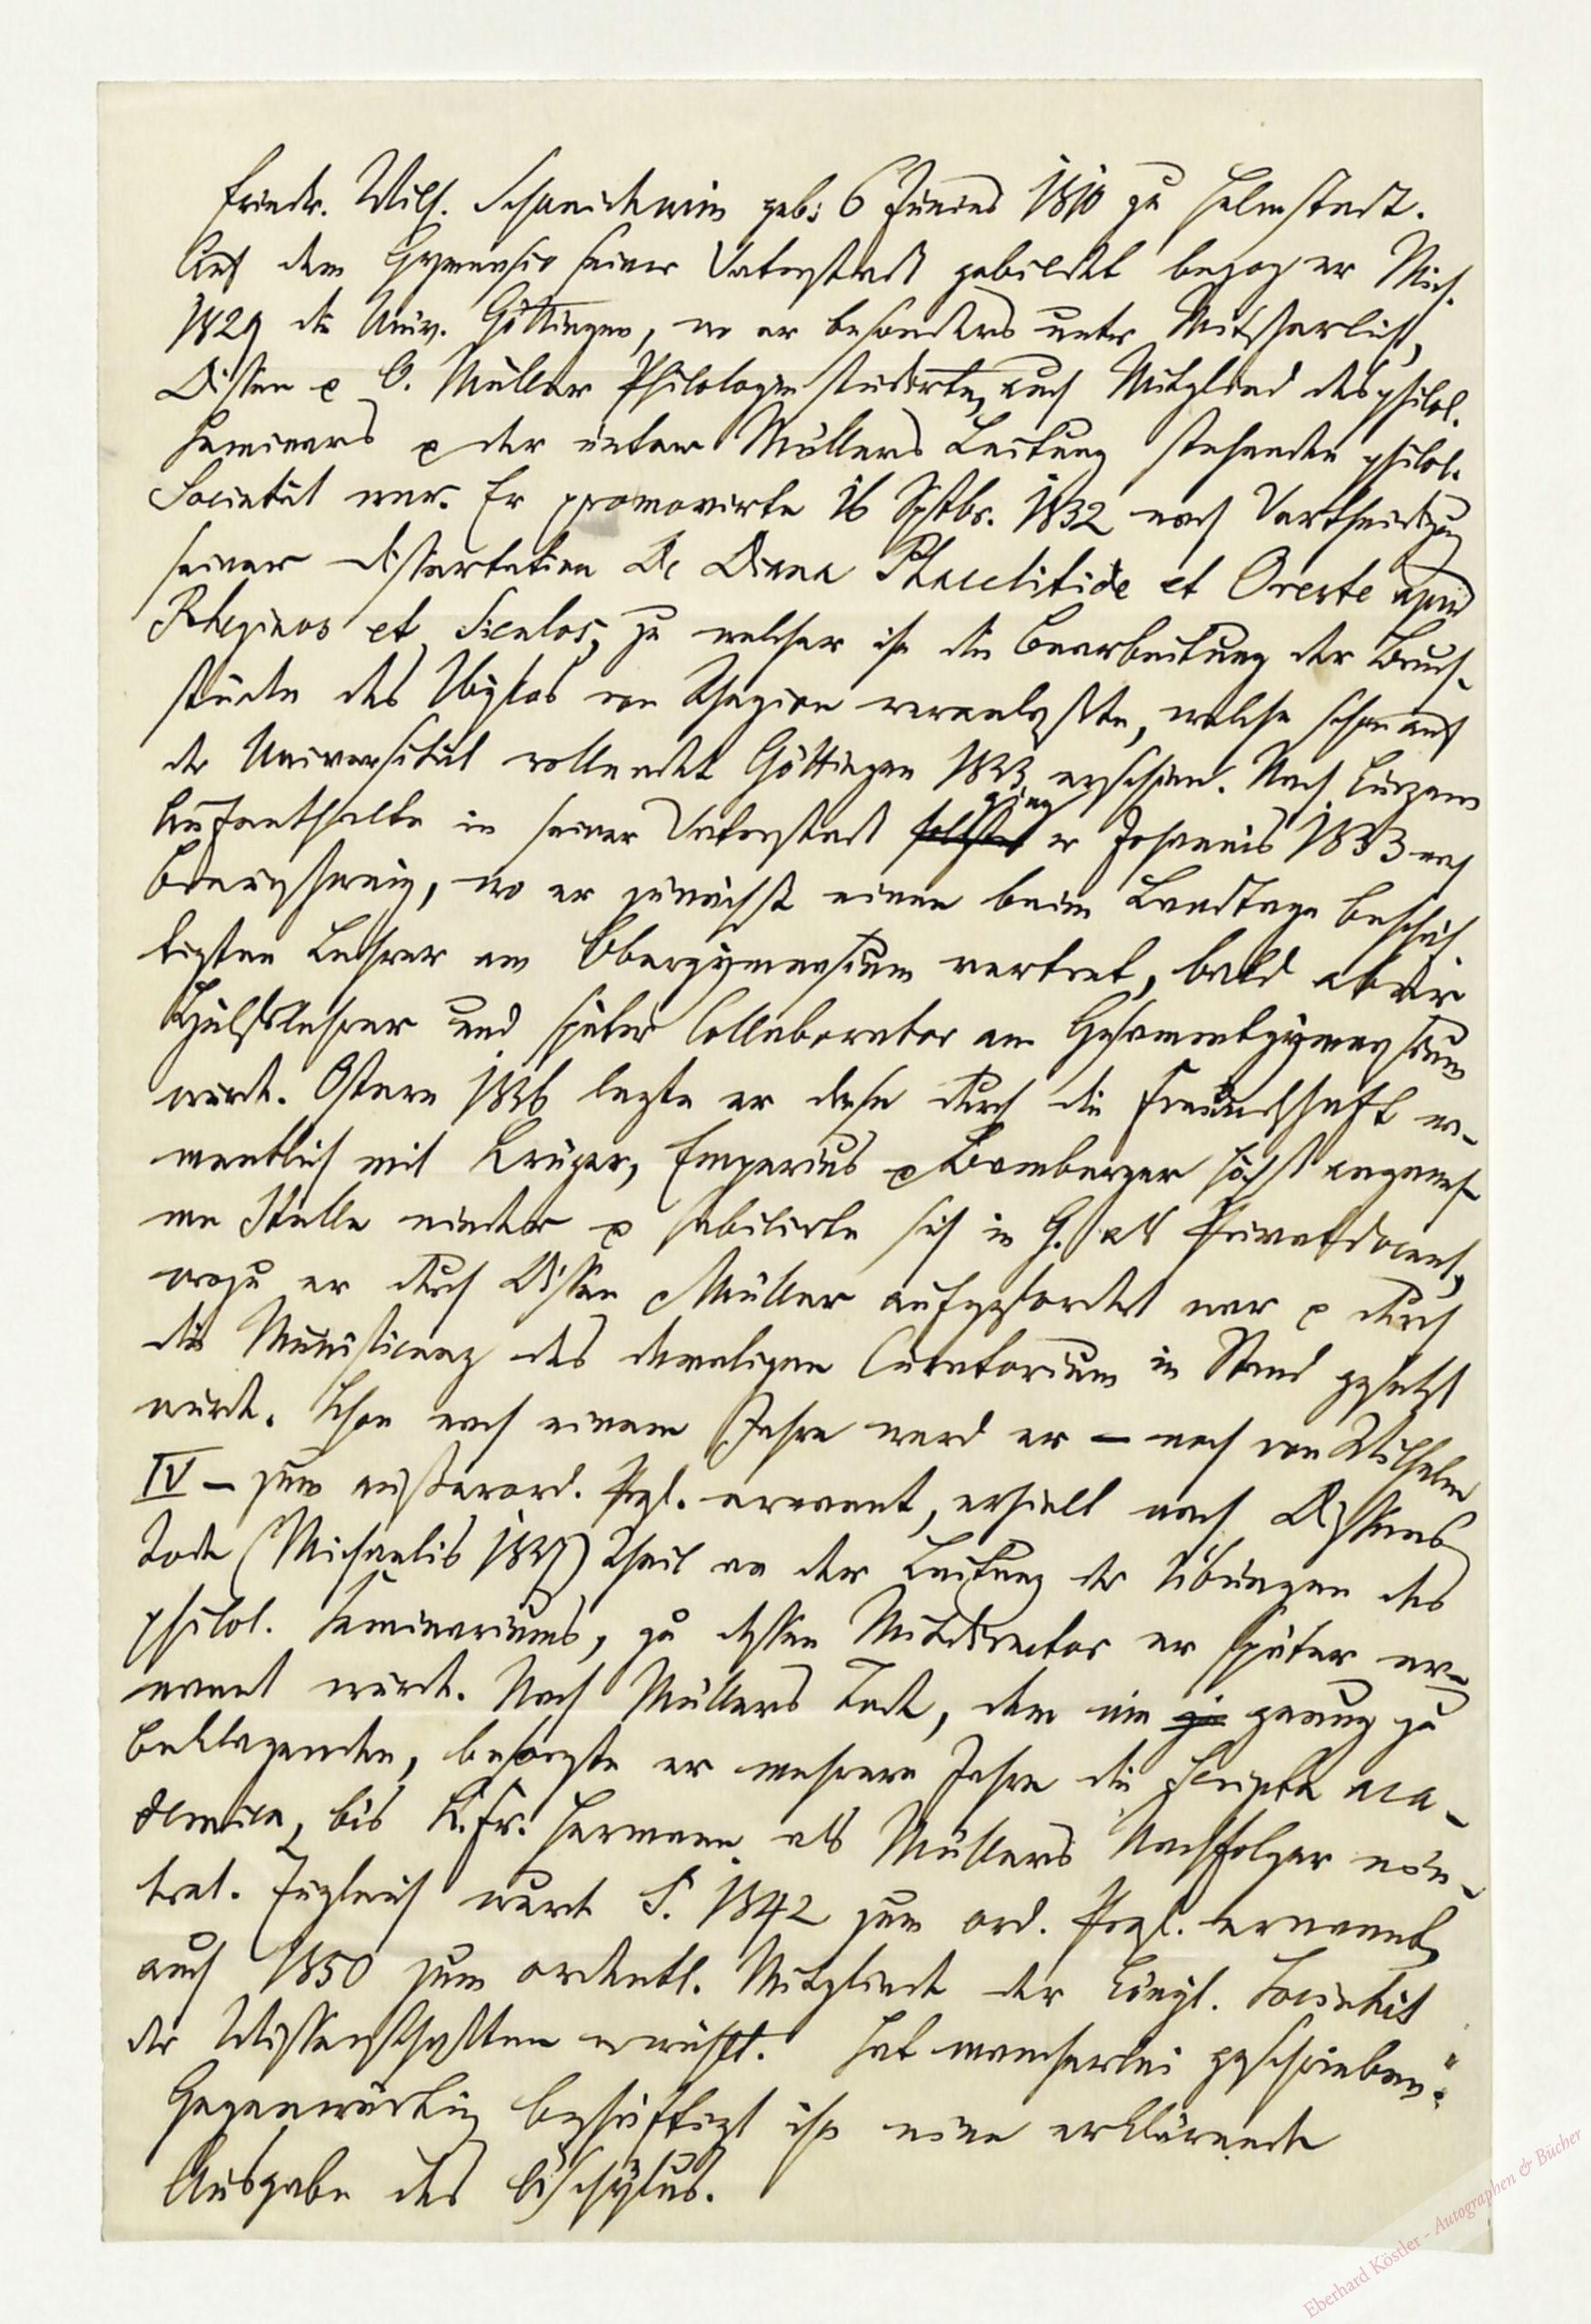 Friedr. Wilh. Schneidewin geb: 6 Junius 1810 zu Helmstedt.
Auf dem Gymnasio seiner Vaterstadt gebildet bezog er Mich.
1829 die Univ. Göttingen, wo er besonders unter Mitscherlich,
Dissen & O. Müller Philologie studirte, auch Mitglied des philol.
Seminars & der unter Müllers Leitung stehenden philol.
Societät war. Er promovirte 16 Sptbr. 1832 nach Vertheidigung
seiner Dissertation De Diana Phacelitide et Oreste apud
Rheginos et Siculos, zu welcher ihn die Bearbeitung der Bruch-
stücke des Ibykos von Rhegion veranlaßte, welche schon auf
der Universität vollendet Göttingen 1833 erschien. Nach kurzem
Aufenthalte in seiner Vaterstadt ging er Johannis 1833 nach
Braunschweig, wo er zunächst einen beim Landtage beschäf
tigten Lehrer am Obergymnasium vertrat, bald aber
Hülfslehrer und später Collaborator am Gesammtgymnasium
wurde. Ostern 1836 legte er diese durch die Freundschaft na-
mentlich mit Krüger, Emperius & Bamberger höchst angeneh-
me Stelle nieder & habilirte sich in G. als Privatdocent,
wozu er durch Dissen Müller aufgefordert war & durch
die Munificenz des damaligen Curatorium in Stand gesetzt
wurde. Schon nach einem Jahre ward er – noch von Wilhelm
IV – zum außerord. Prof. ernannt, erhielt nach Dissens
Tode (Michaelis 1837) Theil an der Leitung der Übungen des
philol. Seminariums, zu dessen Mitdirector er später er-
nannt wurde. Nach Müllers Tode, dem nie genug zu
beklagenden, besorgte er mehrere Jahre die scripta aca-
demica, bis K. Fr. Hermann als Müllers Nachfolger ein-
trat. Zugleich wurde S. 1842 zum ord. Prof. ernannt,
auch 1850 zum ordentl. Mitgliede der Königl. Societät
der Wissenschaften erwählt. Hat mancherlei geschrieben:
Gegenwärtig beschäftigt ihn eine erklärende
Ausgabe des Äschylus.
Eberhard Köstler - Autographen & Bücher